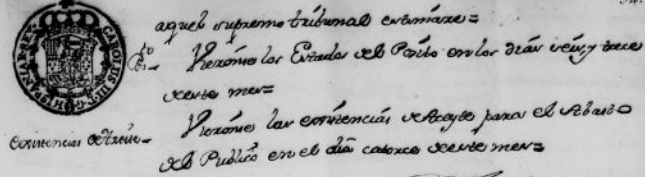 aquel supremo tribunal estimáre=
Vieronse los Estados del Pósito en los dias seis, y trece
de este mes=
Existencias de Azeite=
Vieronse las existencias de Azeyte para el Abasto
del Publico en el dia catorce de este mes=